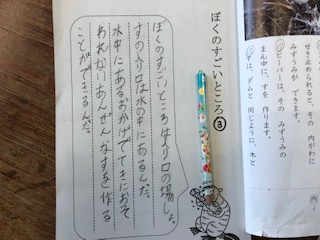 せき止められると、その内がわに
みずうみができます。
ビーバーは、その みずうみの
まん中に、すを 作ります。
すは、ダムと 同じように、木と
ぼくのすごいところ③
ぼくのすごいところは入り口の場しょ。
すの入り口は水の中にあるんだ。
水中にあるおかげでてきにおそ
われないあんぜんなすを作る
ことができるんだ。